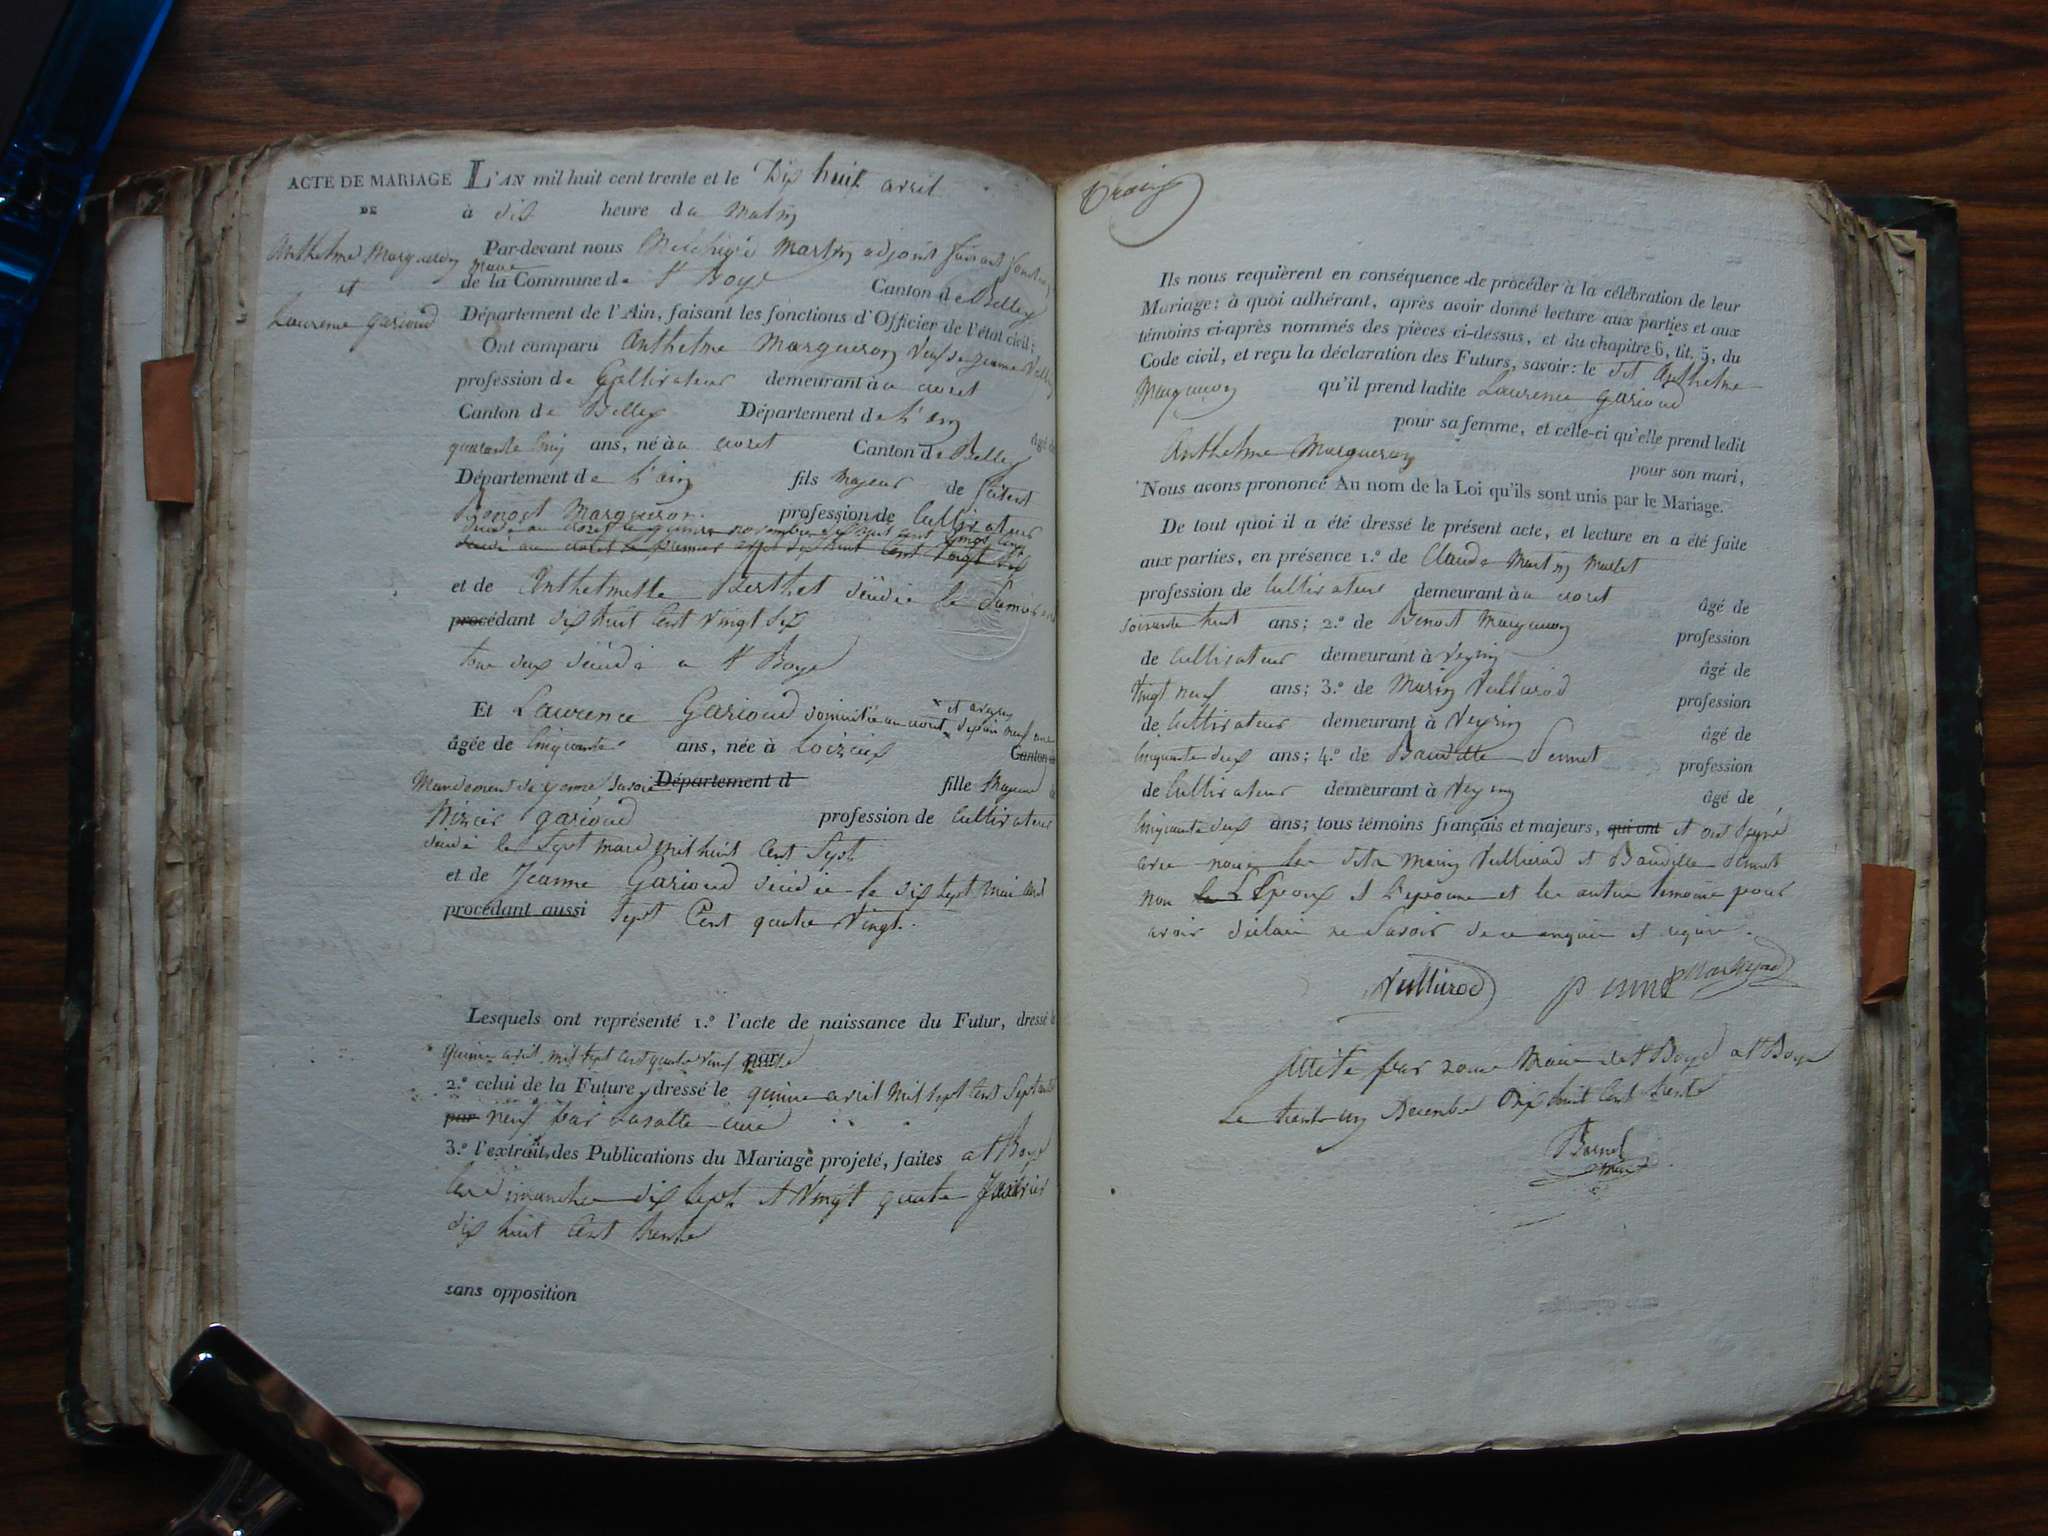 ACTE DE MARIAGE
DE
Anthelme Margueron
et
Laurence Garioud
L'AN mil huit cent trente et le Dix huit avril
à dix heure du matin
Par-devant nous Martin adjoint faisant
maire
de la Commune de St Boys Canton de Belley
Département de l'Ain, faisant les fonctions d'Officier de l'état civil;
Ont comparu Anthelme Margueron Veuf de
profession de Cultivateur demeurant à
Canton de Belley Département de l'ain
âgé de
quarante cinq ans, né à Canton de Belley
Département de l'ain fils majeur de
Benoit Margueron profession de Cultivateur
et de Anthelmette Berthet
procédant dix huit Cent Vingt dix
tous deux a St Boys
Et Laurence Garioud neuf ans
âgée de Cinquante ans, née à Canton de
Mandement de yenne Savoie Département d fille Majeure de
Nizier garioud profession de Cultivateur
le Sept mars mil huit Cent Sept
et de Jeanne Garioud le dix Sept mai
procédant aussi Sept Cent quatre Vingt.
Lesquels ont représenté 1.º l'acte de naissance du Futur, dressé le
avril mil Sept Cent quatre par
2.º celui de la Future, dressé le avril Mil Sept Cent Septante
par neuf par Lasalle curé
3.º l'extrait des Publications du Mariage projeté, faites a St Boys
dimanche dix Sept et Vingt quatre Janvier
dix huit Cent trente
sans opposition
Ils nous requièrent en conséquence de procéder à la célébration de leur
Mariage: à quoi adhérant, après avoir donné lecture aux parties et aux
témoins ci-après nommés des pièces ci-dessus, et du chapitre 6, tit. 5, du
Code civil, et reçu la déclaration des Futurs, savoir: le dit Anthelme
Margueron qu'il prend ladite Laurence garioud
pour sa femme, et celle-ci qu'elle prend ledit
Anthelme Margueron pour son mari,
Nous avons prononcé Au nom de la Loi qu'ils sont unis par le Mariage.
De tout quoi il a été dressé le présent acte, et lecture en a été faite
aux parties, en présence 1.º de Claude Martin
profession de Cultivateur demeurant à âgé de
soixante huit ans; 2.º de Benoit Margueron profession
de Cultivateur demeurant à Veyrin âgé de
Vingt neuf ans; 3.º de Marin Vullierod profession
de Cultivateur demeurant à Veyrin âgé de
Cinquante deux ans; 4.º de Baudille Pennet profession
de Cultivateur demeurant à Veyrin âgé de
Cinquante deux ans; tous témoins français et majeurs, qui ont et ont signé
avec nous Vullierod et Baudille
non Epoux et l'epouse et les autres temoins pour
avoir déclaré ne Savoir de ce enquis et requis.
Vullierod
Arrêté par nous Maire de St Boys a St Boys
Le trente un Decembre Dix huit Cent trente